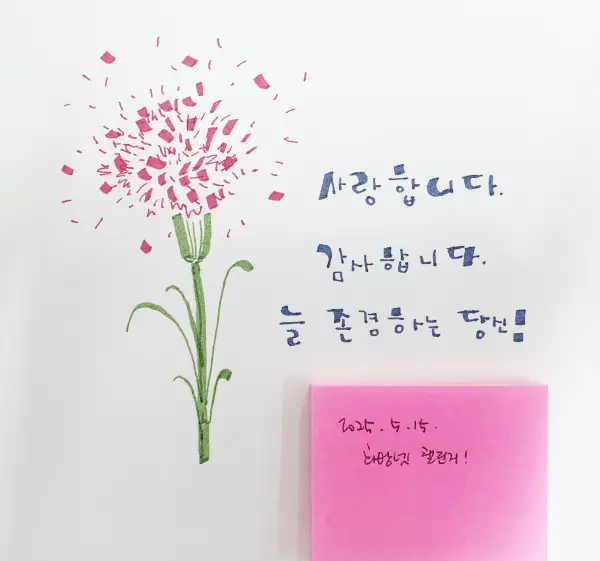 사랑합니다.
감사합니다.
늘 존경하는 당신!
2025. 5. 15.
챌린지!